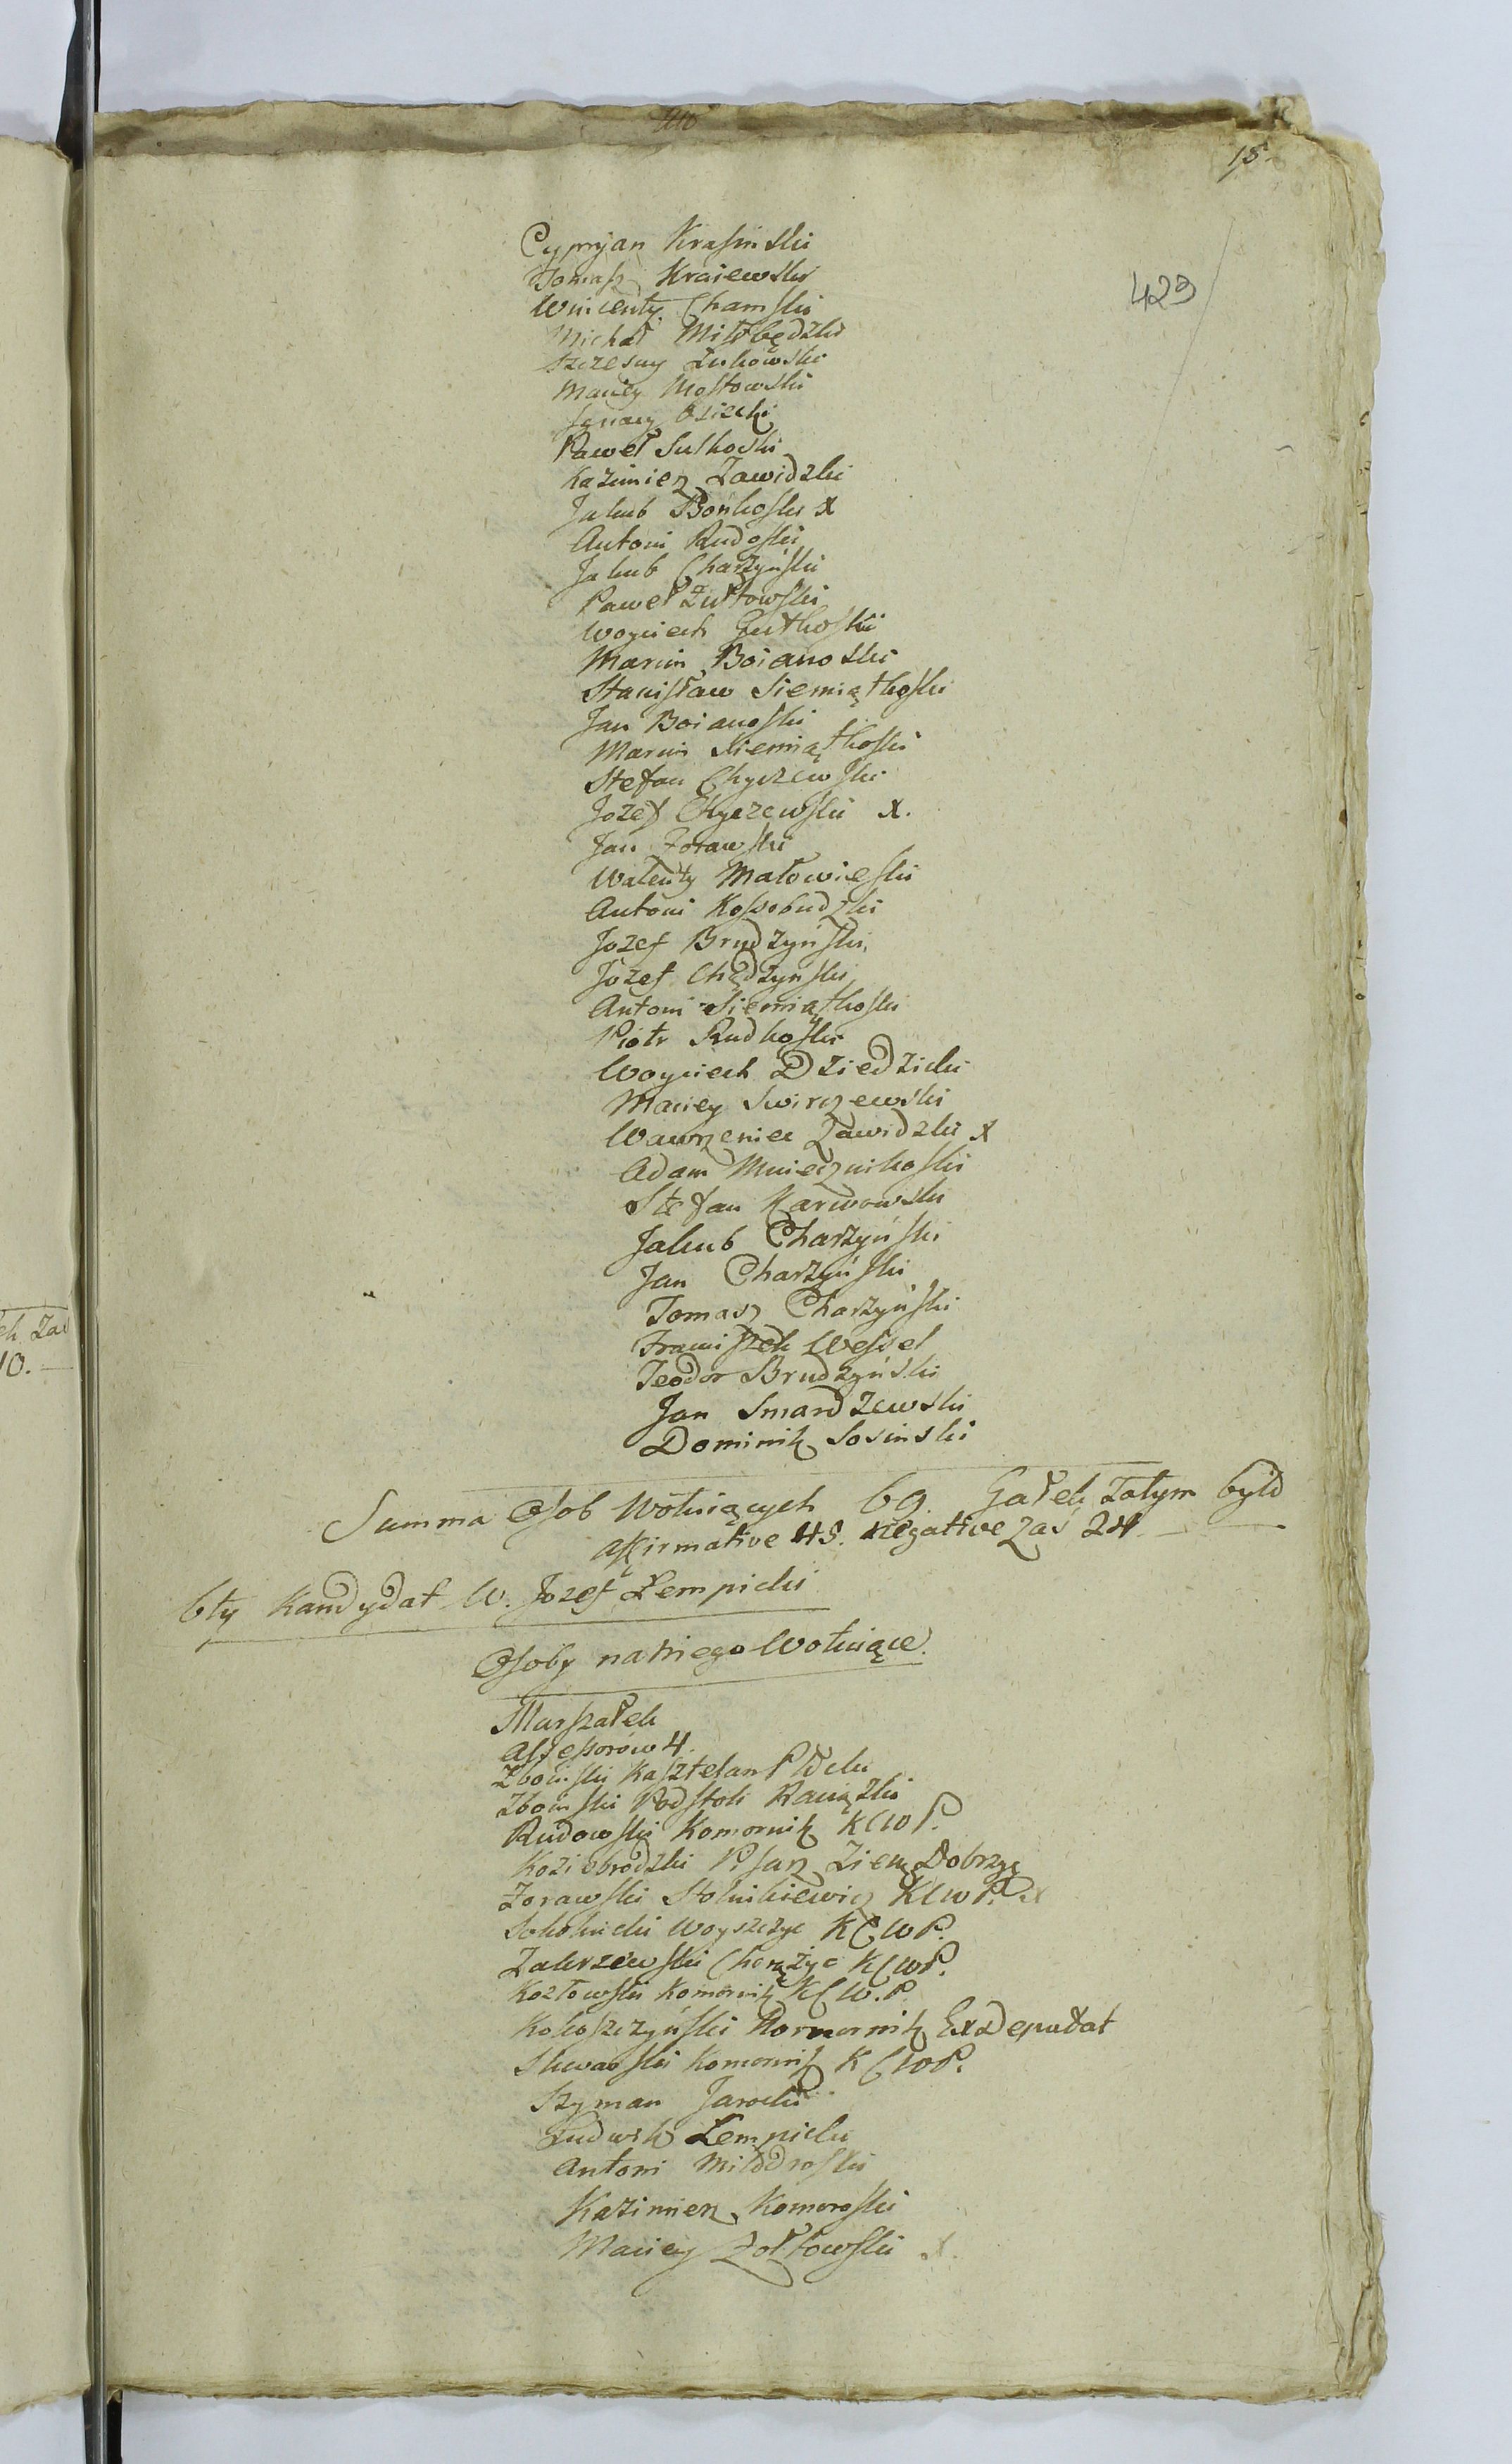 15
429
Cypryan Krasinski
Tomasz Kraiewski
Wincenty Chamski
Michał Miłobędzki
Szczesny Żukowski
Maciey Mostowski
Ignacy Osiecki
Paweł Sutkoski
Kazimierz Zawidzki
Jakub Bońkoski x
Antoni Rudoski
Jakub Charzyński
Paweł Żułtowski
Woyciech Gutkoski
Marcin Boianoski
Stanisław Siemiątkoski
Jan Boianoski
Marcin Siemiątkoski
Stefan Chyczewski
Jozef Chyczewski x.
Jan Zorawski
Walenty Małowieski
Antoni Kossobudzki
Jozef Brudzyński
Jozef Chędzyński
Antoni Siemiątkoski
Piotr Rudkoski
Woyciech Dziedzicki
Maciey Swirczewski
Wawrzeniec Zawidzki x
Adam Mniecznikoski
Stefan Karwowski
Jakub Charzyński
Jan Charzyński
Tomasz Charzyński
Franciszek Wessel
Teodor Brudzyński
Jan Smardzewski
Dominik Sosinski
Summa Osob Wotuiących 69. Gałek Zatym było
affirmative 45. negative zaś 24.
6ty Kandydat W. Jozef Łempicki
Osoby na Niego Wotuiące.
Marszałek
Assessorow 4.
Zboinski Kasztelan Płocki
Zboinski Podstoli Raciązki
Rudowski Komornik K C W P.
Koziebrodzki Pisarz Ziemę Dobrzyę
Zorawski Stolnikiewicz K C W P. x
Sokolnicki Woyszczyc K C W P.
Zakrzewski Chorążyc K C W P.
Kozłowski Komornik K C W. P.
Kokoszczyński Komornik ExDeputat
Skwarski Komornik K C W P.
Szyman Jarocki
Ludwik Łempicki
Antoni Miłodroski
Kazimierz Komoroski
Maciey Żołtowski x.